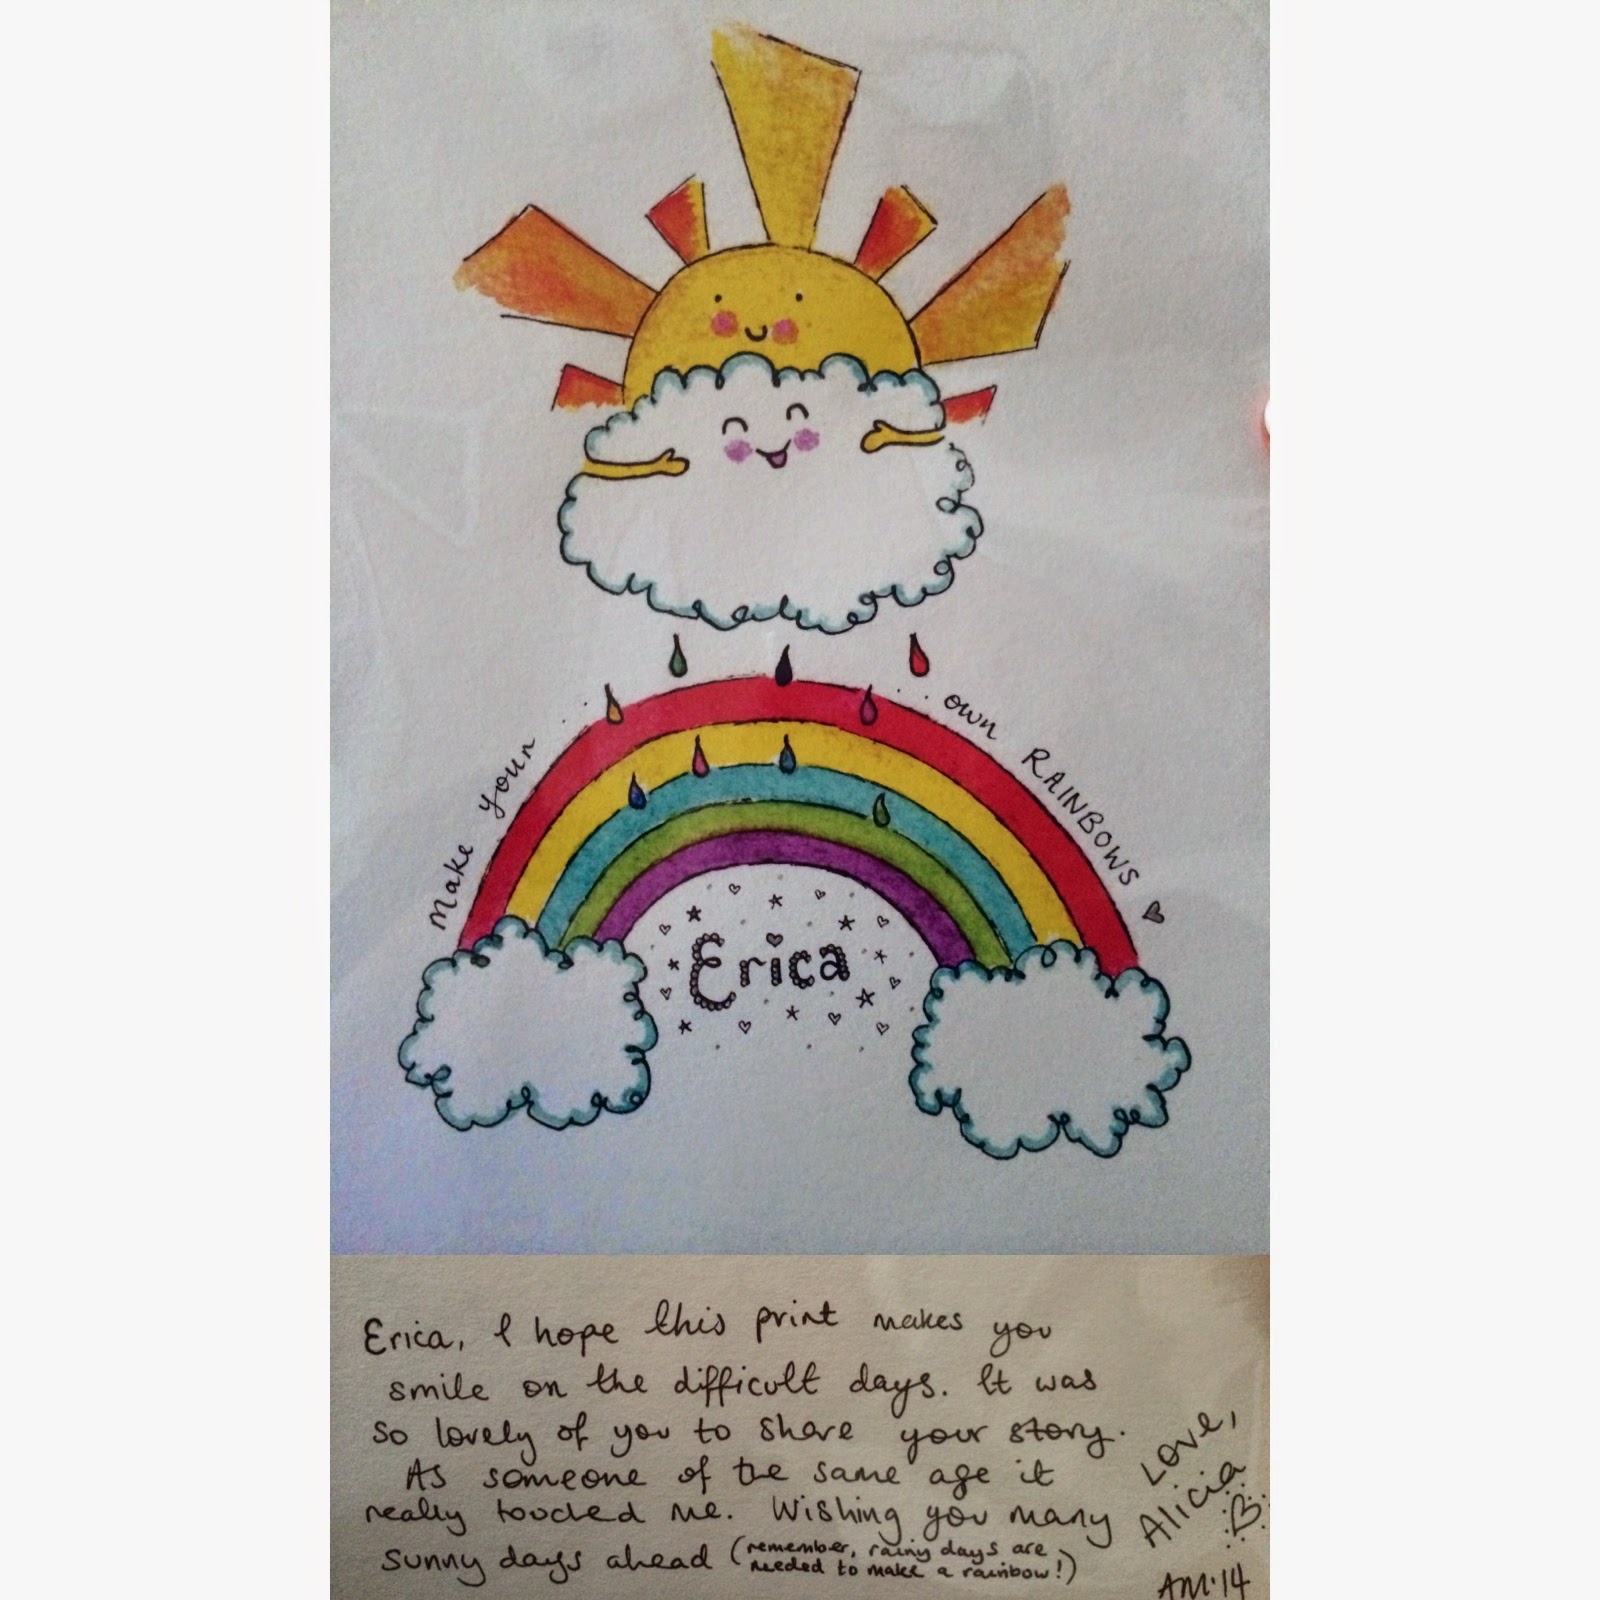 Make your ... own RAINBOWS
Erica
Erica, I hope this print makes you
smile on the difficult days. It was
so lovely of you to share your story.
As someone of the same age it
really touched me. Wishing you many
sunny days ahead (remember, rainy days are
needed to make a rainbow!)
Love,
Alicia
AM.14